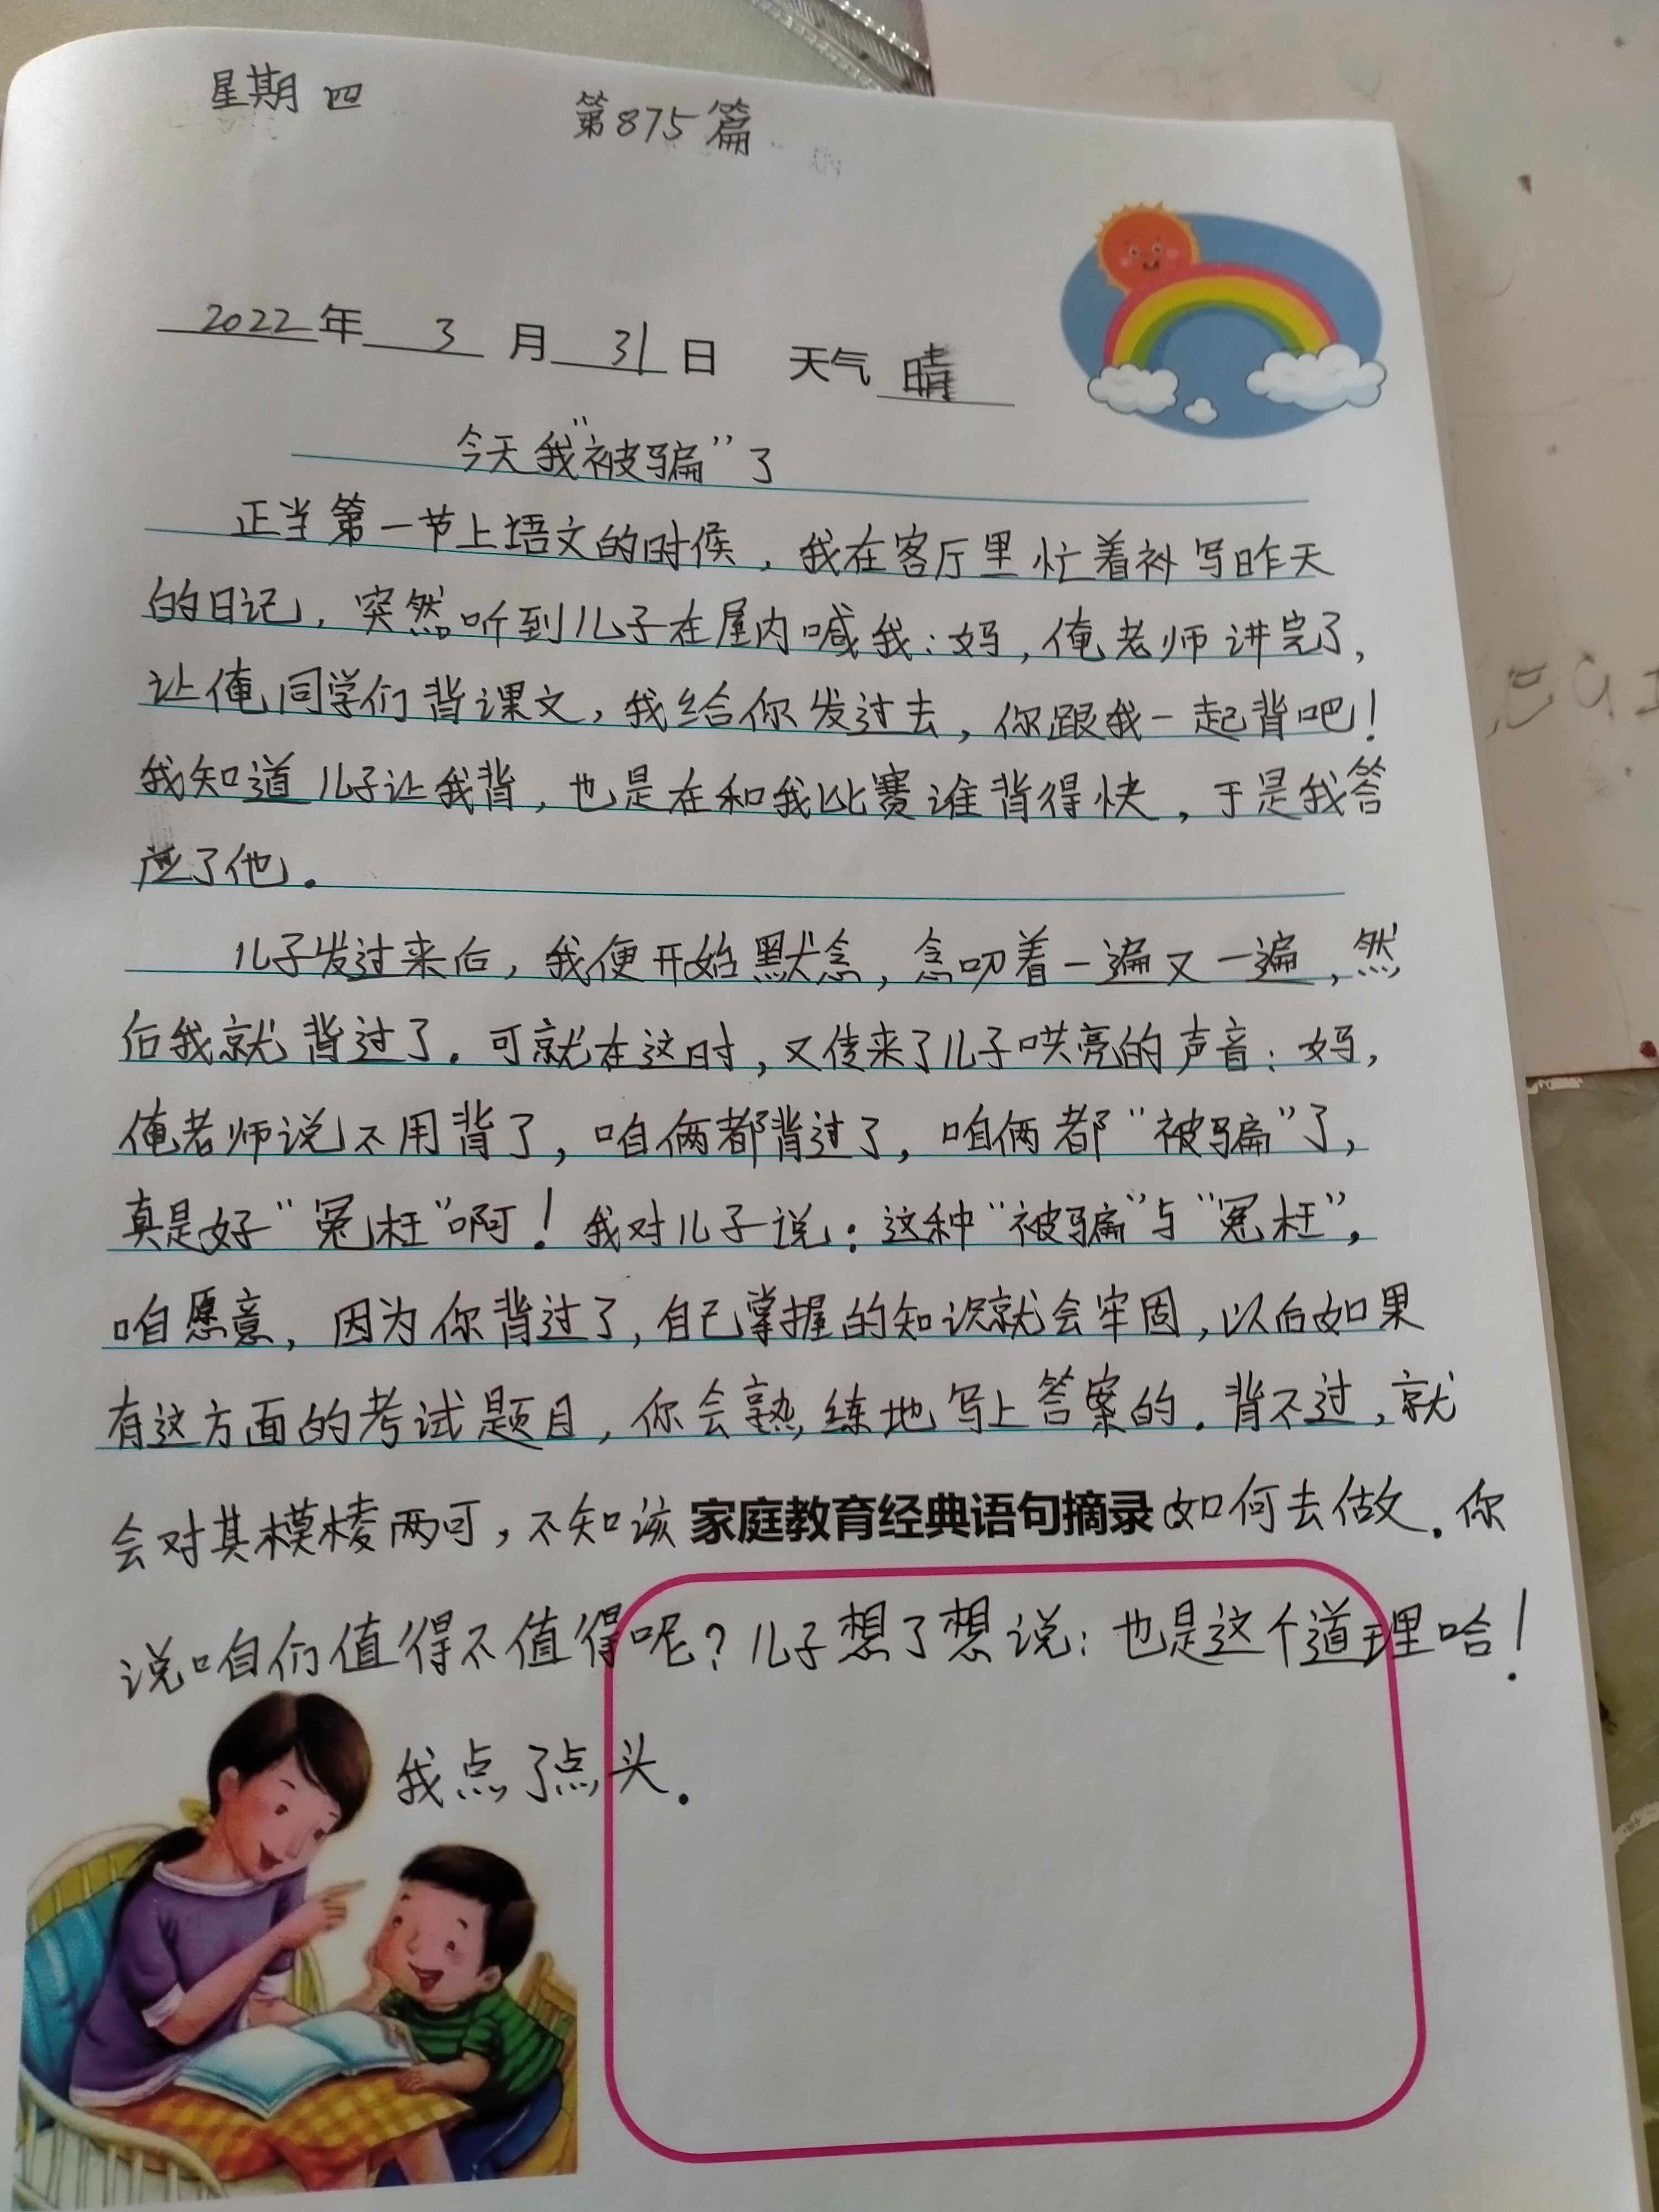 星期四 第875篇
2022年 3 月 31 日 天气 晴
今天我“被骗”了
正当第一节上语文的时候，我在客厅里忙着补写昨天
的日记，突然听到儿子在屋内喊我：妈，俺老师讲完了，
让俺同学们背课文，我给你发过去，你跟我一起背吧！
我知道儿子让我背，也是在和我比赛谁背得快，于是我答
应了他。
儿子发过来后，我便开始默念，念叨着一遍又一遍，然
后我就背过了。可就在这时，又传来了儿子哄亮的声音：妈，
俺老师说不用背了，咱俩都背过了，咱俩都“被骗”了，
真是好“冤枉”啊！我对儿子说：这种“被骗”与“冤枉”，
咱愿意，因为你背过了，自己掌握的知识就会牢固，以后如果
有这方面的考试题目，你会熟练地写上答案的。背不过，就
会对其模棱两可，不知该 家庭教育经典语句摘录 如何去做。你
说咱们值得不值得呢？儿子想了想说：也是这个道理哈！
我点了点头。